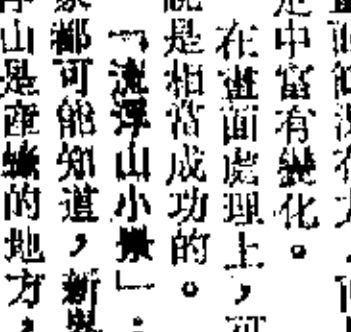 中富有變化。
在畫面處理上，可
是相當成功的。
「流浮山小景」：
家都可能知道，新界
山是產蠔的地方，